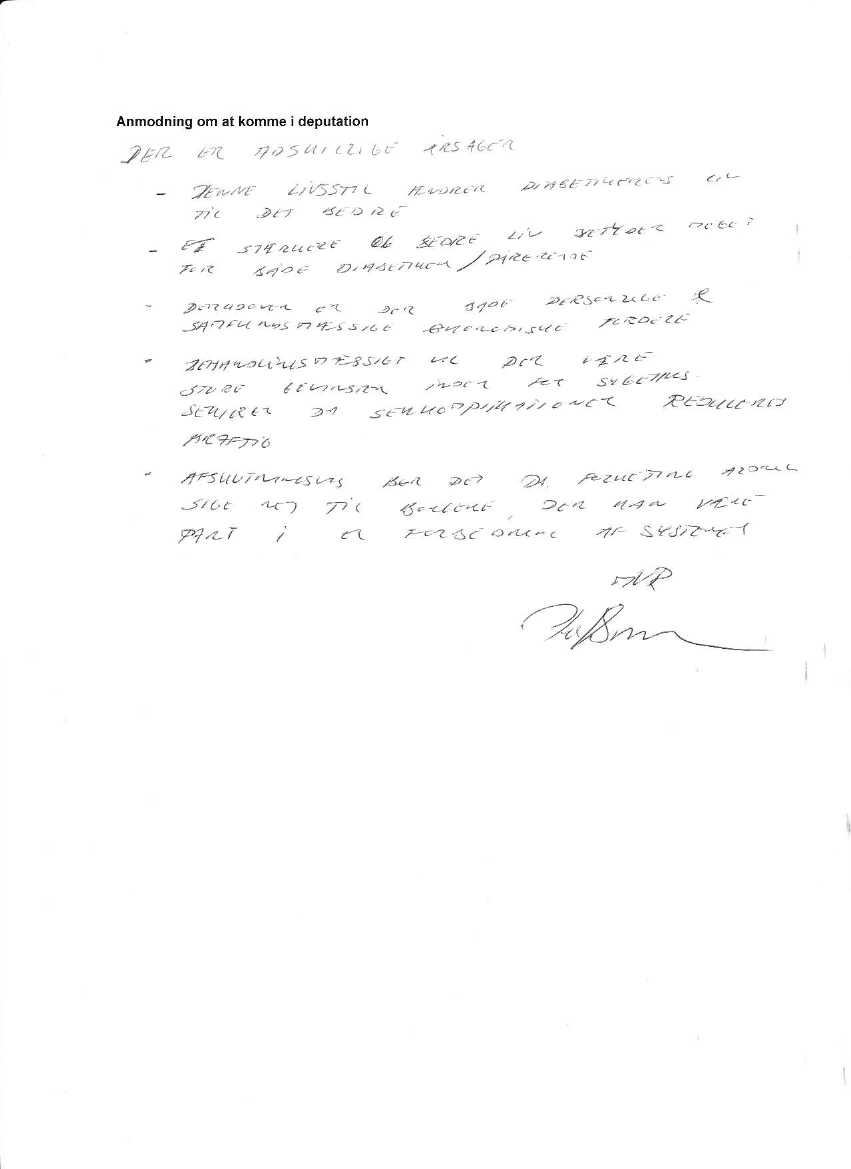 Anmodning om at komme i deputation
DER ER ADSKILLIGE ÅRSAGER
- DENNE LIVSSTIL ÆNDRER DIABETIKERENS LIV
TIL DET BEDRE
- ET STÆRKERE OG BEDRE LIV BETYDER MEGET
FOR BÅDE DIABETIKER / PÅRØRENDE
- DERUDOVER ER DER BÅDE PERSONLIGE &
SAMFUNDSMÆSSIGE ØKONOMISKE FORDELE
- BEHANDLINGSMÆSSIGT VIL DER VÆRE
STORE GEVINSTER INDEN FOR SYGEHUS
DA SENKOMPLIKATIONER REDUCERES
KRÆFTIG
- AFSLUTNINGSVIS BØR DET DA ALDRIG
SIGE NEJ TIL BORGERE, DER KAN VÆRE
PART I EN FORBEDRING AF SYSTEMET
MVR